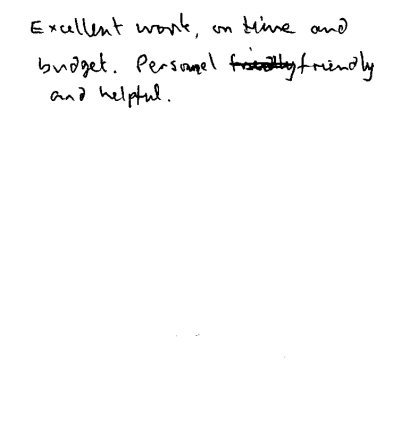 Excellent work, on time and
budget. Personel friendly
and helpful.